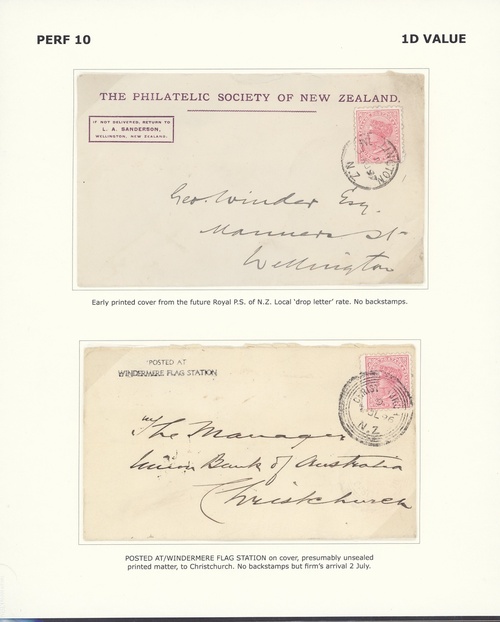 PERF 10
1D VALUE
THE PHILATELIC SOCIETY OF NEW ZEALAND.
IF NOT DELIVERED, RETURN TO
L. A. SANDERSON,
WELLINGTON, NEW ZEALAND.
N.Z
Geo. Winder Esq.
Manners St
Wellington
Early printed cover from the future Royal P.S. of N.Z. Local 'drop letter' rate. No backstamps.
POSTED AT
WINDERMERE FLAG STATION
N.Z.
The Manager
Union Bank of Australia
Christchurch
POSTED AT/WINDERMERE FLAG STATION on cover, presumably unsealed
printed matter, to Christchurch. No backstamps but firm's arrival 2 July.